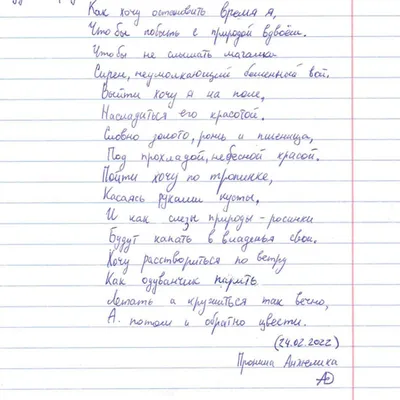 Как хочу остановить время я,
Чтобы побыть с природой вдвоём.
Чтобы не слышать
Сирен, неумолкающий бешенный вой.
Выйти хочу я на поле,
Насладиться его красотой.
Словно золото, рожь и пшеница,
Под прохладой, небесной красой.
Пойти хочу по тропинке,
Касаясь руками кусты,
И как слезы природы - росинки
Будут капать в владенья свои.
Хочу расствориться по ветру
Как одуванчик парить
Летать и кружиться так вечно,
А потом и обратно цвести.
(24.02.2022)
Пронина Анжелика